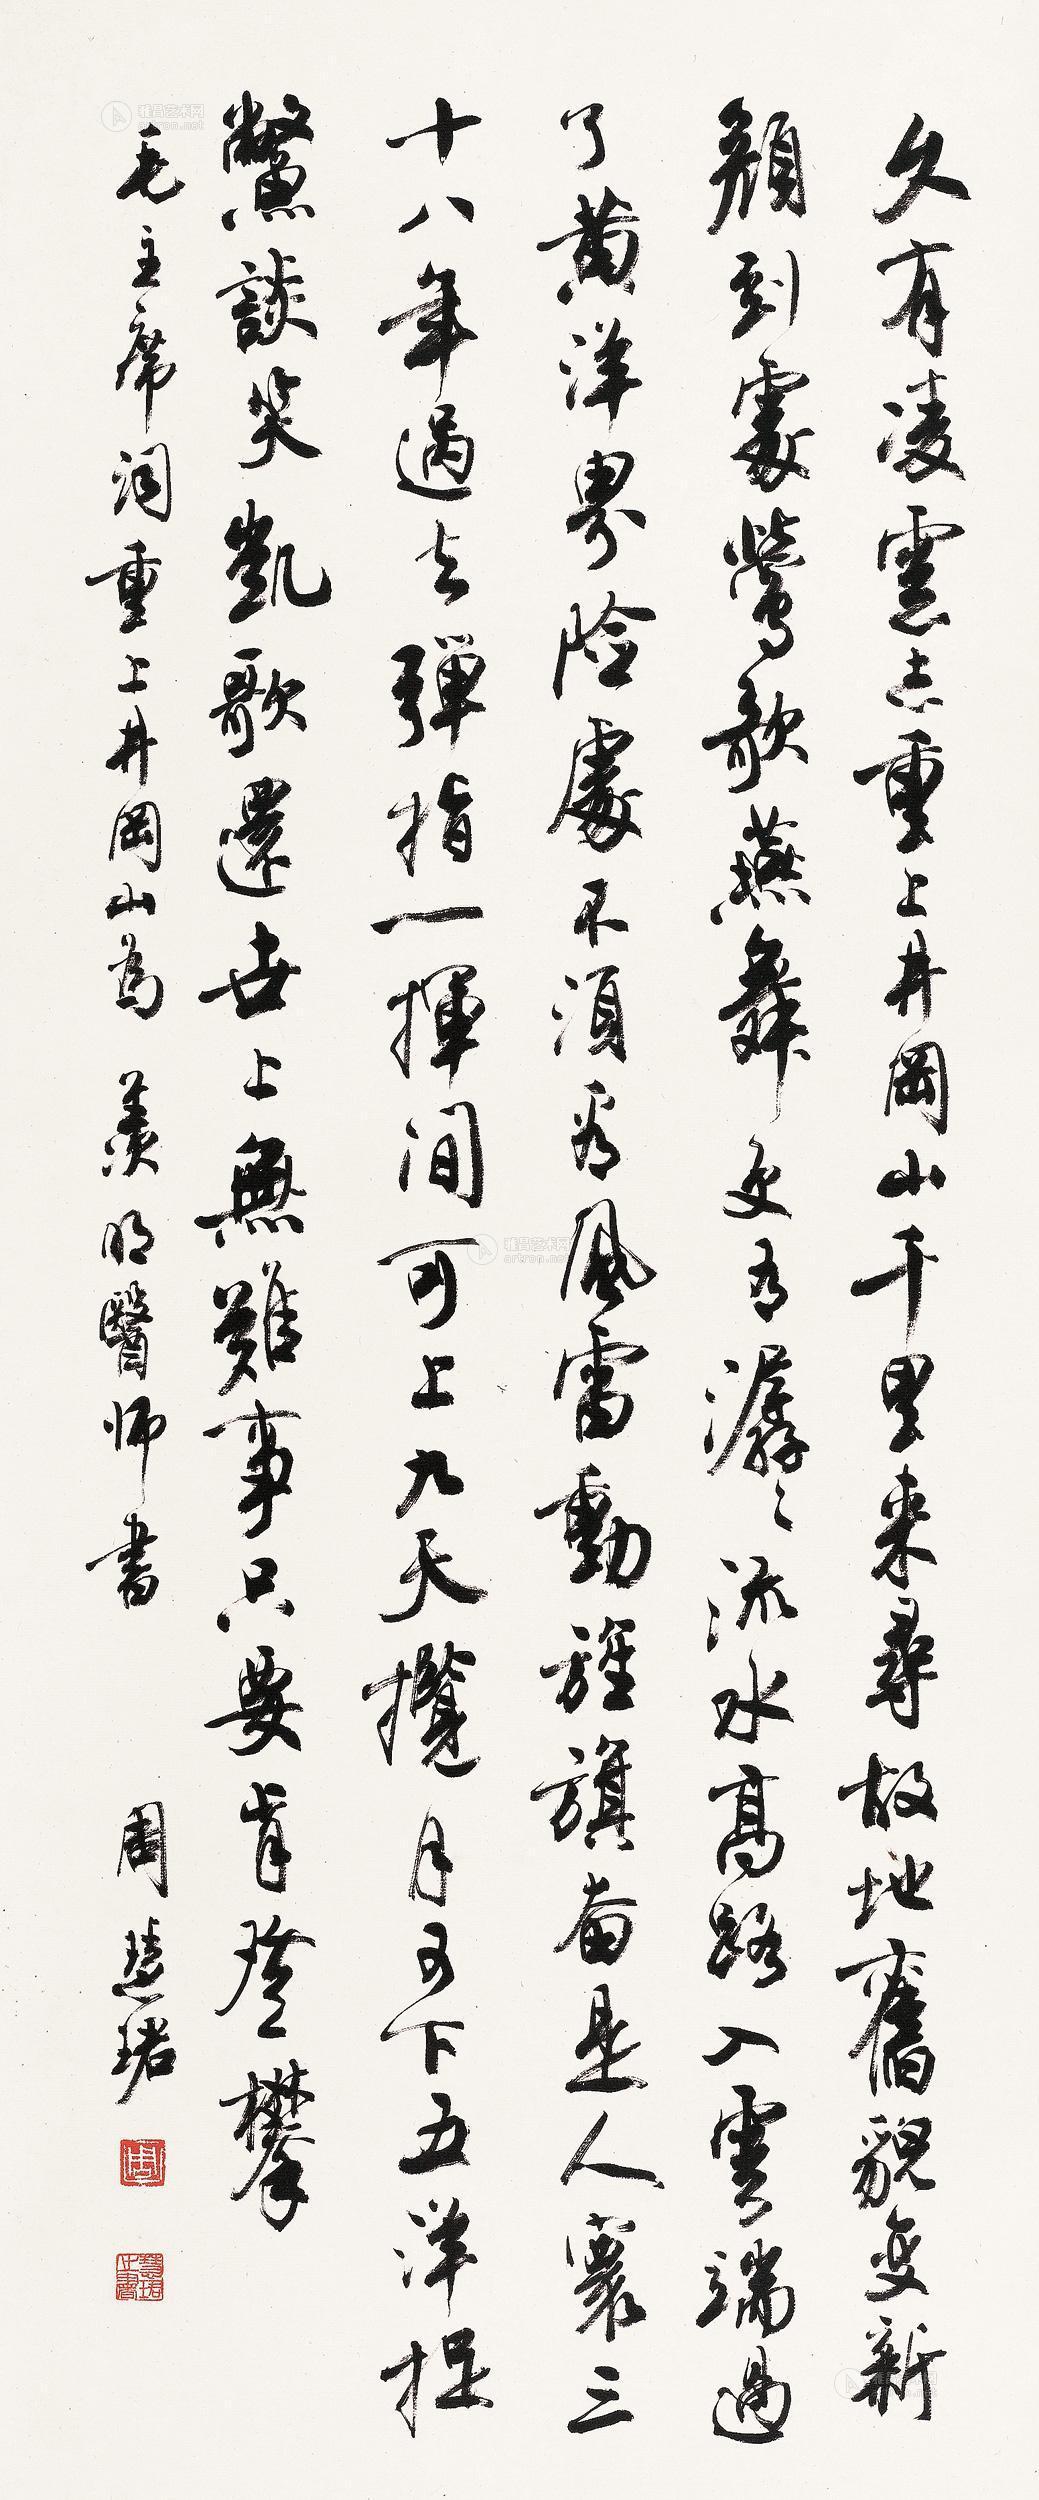 久有凌雲志重上井岡山千里来尋故地舊貌变新
顏到處鶯歌燕舞更有潺〻流水高路入雲端過
了黄洋界险處不須看風雷動旌旗奋是人寰三
十八年過去弹指一揮间可上九天攬月可下五洋捉
鱉談笑凱歌還世上無難事只要肯登攀
毛主席词重上井岡山為 羨明醫师書 周慧珺
雅昌艺术网
artron.net
雅昌艺术网
artron.net
周
慧珺之書